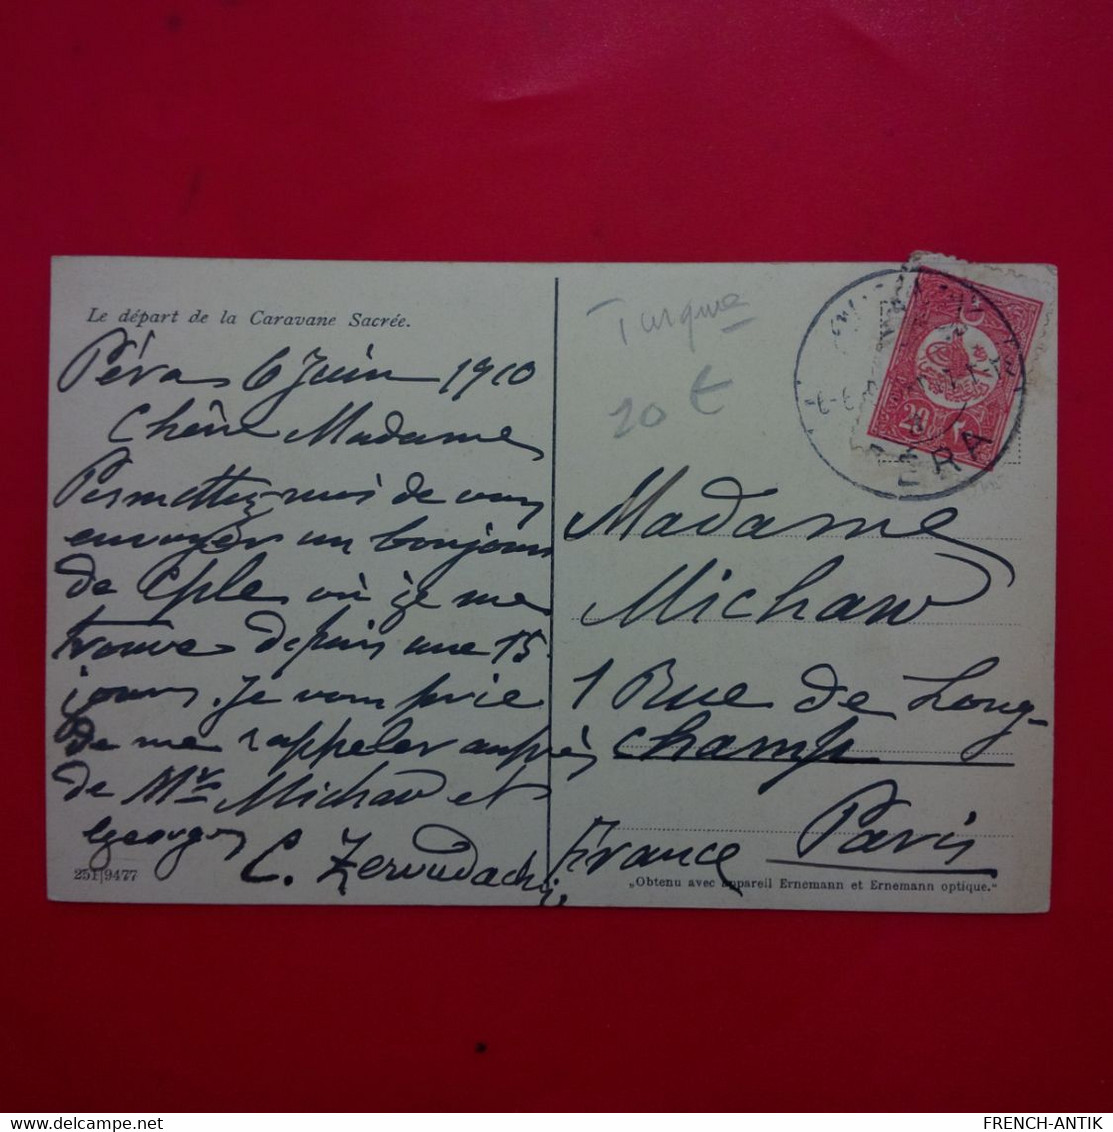 Le départ de la Caravane Sacrée.
Péra 6 Juin 1910
Chère Madame
Permettez-moi de vous
envoyer un bonjour
de Cple où je me
trouve depuis une 15
jours. Je vous prie
de me rappeler auprès
de Mr Michaw et
Georges
C. Zervudachi
251|9477
Turquie
20 €
20
PÉRA
Madame
Michaw
1 Rue de Long-
champ
Paris
France
„Obtenu avec appareil Ernemann et Ernemann optique."
FRENCH-ANTIK